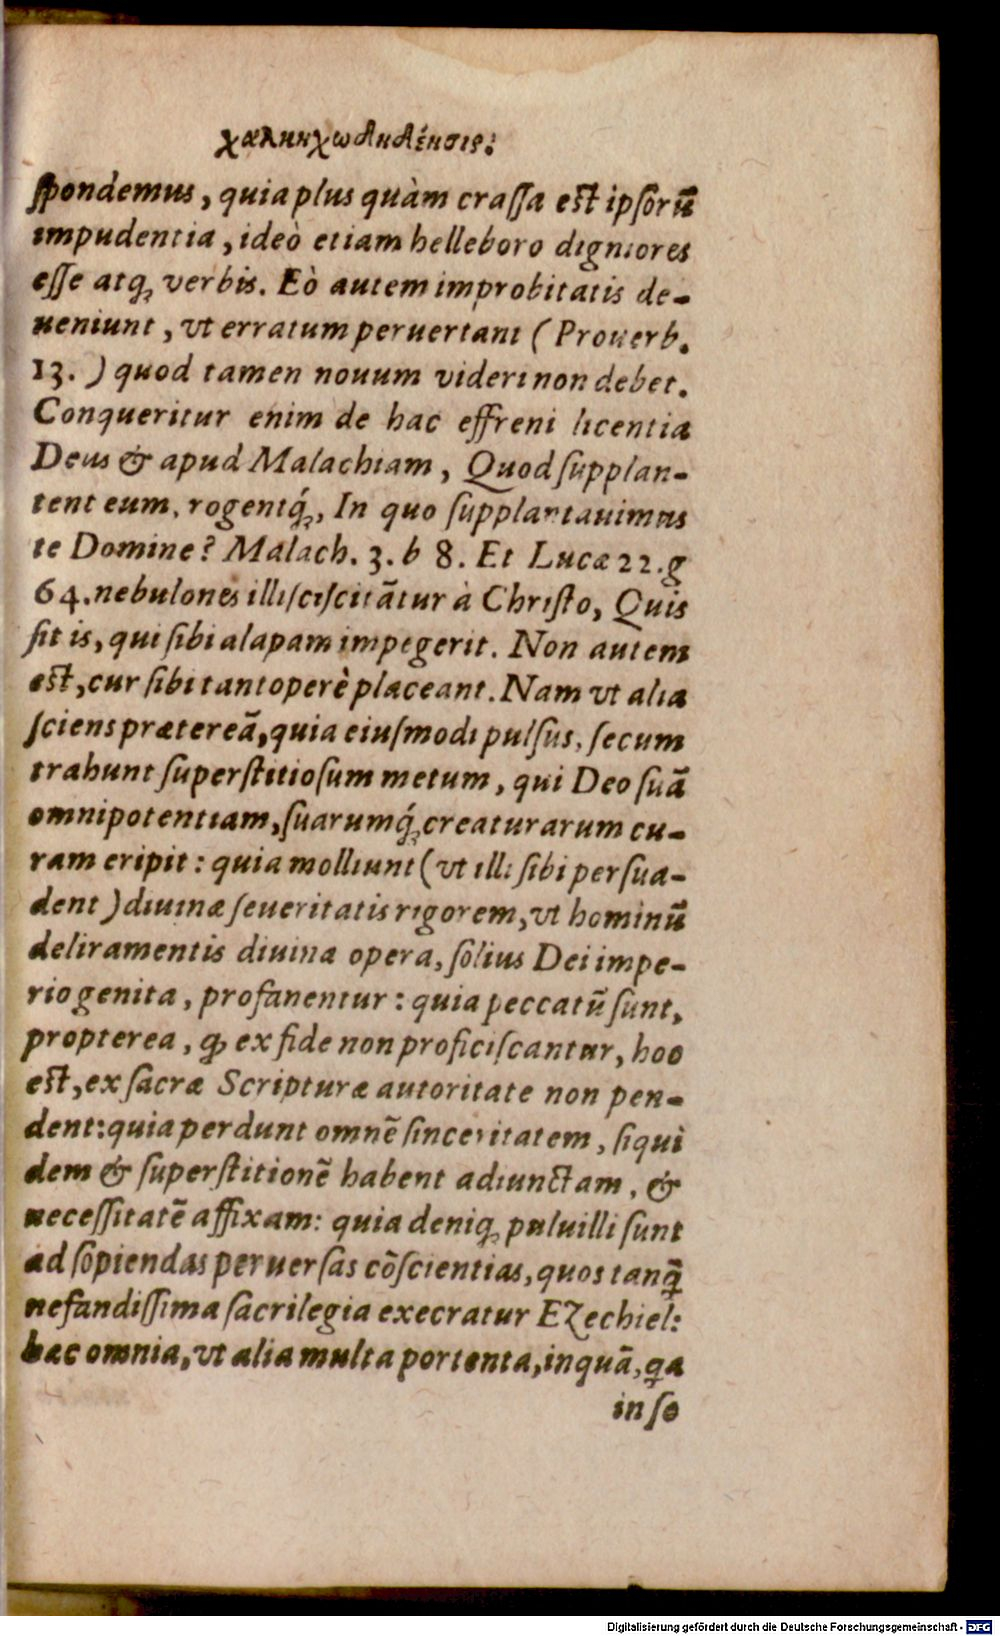 χαληκχωδηδένσις:
ſpondemus, quia plus quàm craſſa eſt ipſorũ
impudentia, ideò etiam helleboro digniores
eſſe atq́; verbis. Eò autem improbitatis de-
ueniunt, vt erratum peruertant (Prouerb.
13.) quod tamen nouum videri non debet.
Conqueritur enim de hac effreni licentia
Deus & apud Malachiam, Quod ſupplan-
tent eum, rogentq́;, In quo ſupplantauimus
te Domine? Malach. 3. b 8. Et Lucæ 22. g
64. nebulones illi ſciſcitãtur à Chriſto, Quis
ſit is, qui ſibi alapam impegerit. Non autem
eſt, cur ſibi tantoperè placeant. Nam vt alia
ſciens prætereã, quia eiuſmodi pulſus, ſecum
trahunt ſuperſtitioſum metum, qui Deo ſuã
omnipotentiam, ſuarumq́; creaturarum cu-
ram eripit: quia molliunt (vt illi ſibi perſua-
dent) diuinæ ſeueritatis rigorem, vt hominũ
deliramentis diuina opera, ſolius Dei impe-
rio genita, profanentur: quia peccatũ ſunt,
propterea, ꝙ ex fide non proficiſcantur, hoc
eſt, ex ſacræ Scripturæ autoritate non pen-
dent: quia perdunt omnẽ ſinceritatem, ſiqui
dem & ſuperſtitionẽ habent adiunctam, &
neceſſitatẽ affixam: quia deniq; puluilli ſunt
ad ſopiendas peruerſas cõſcientias, quos tanq̃
nefandiſſima ſacrilegia execratur Ezechiel:
hæc omnia, vt alia multa portenta, inquã, qa
in ſe
Digitalisierung gefördert durch die Deutsche Forschungsgemeinschaft - DFG